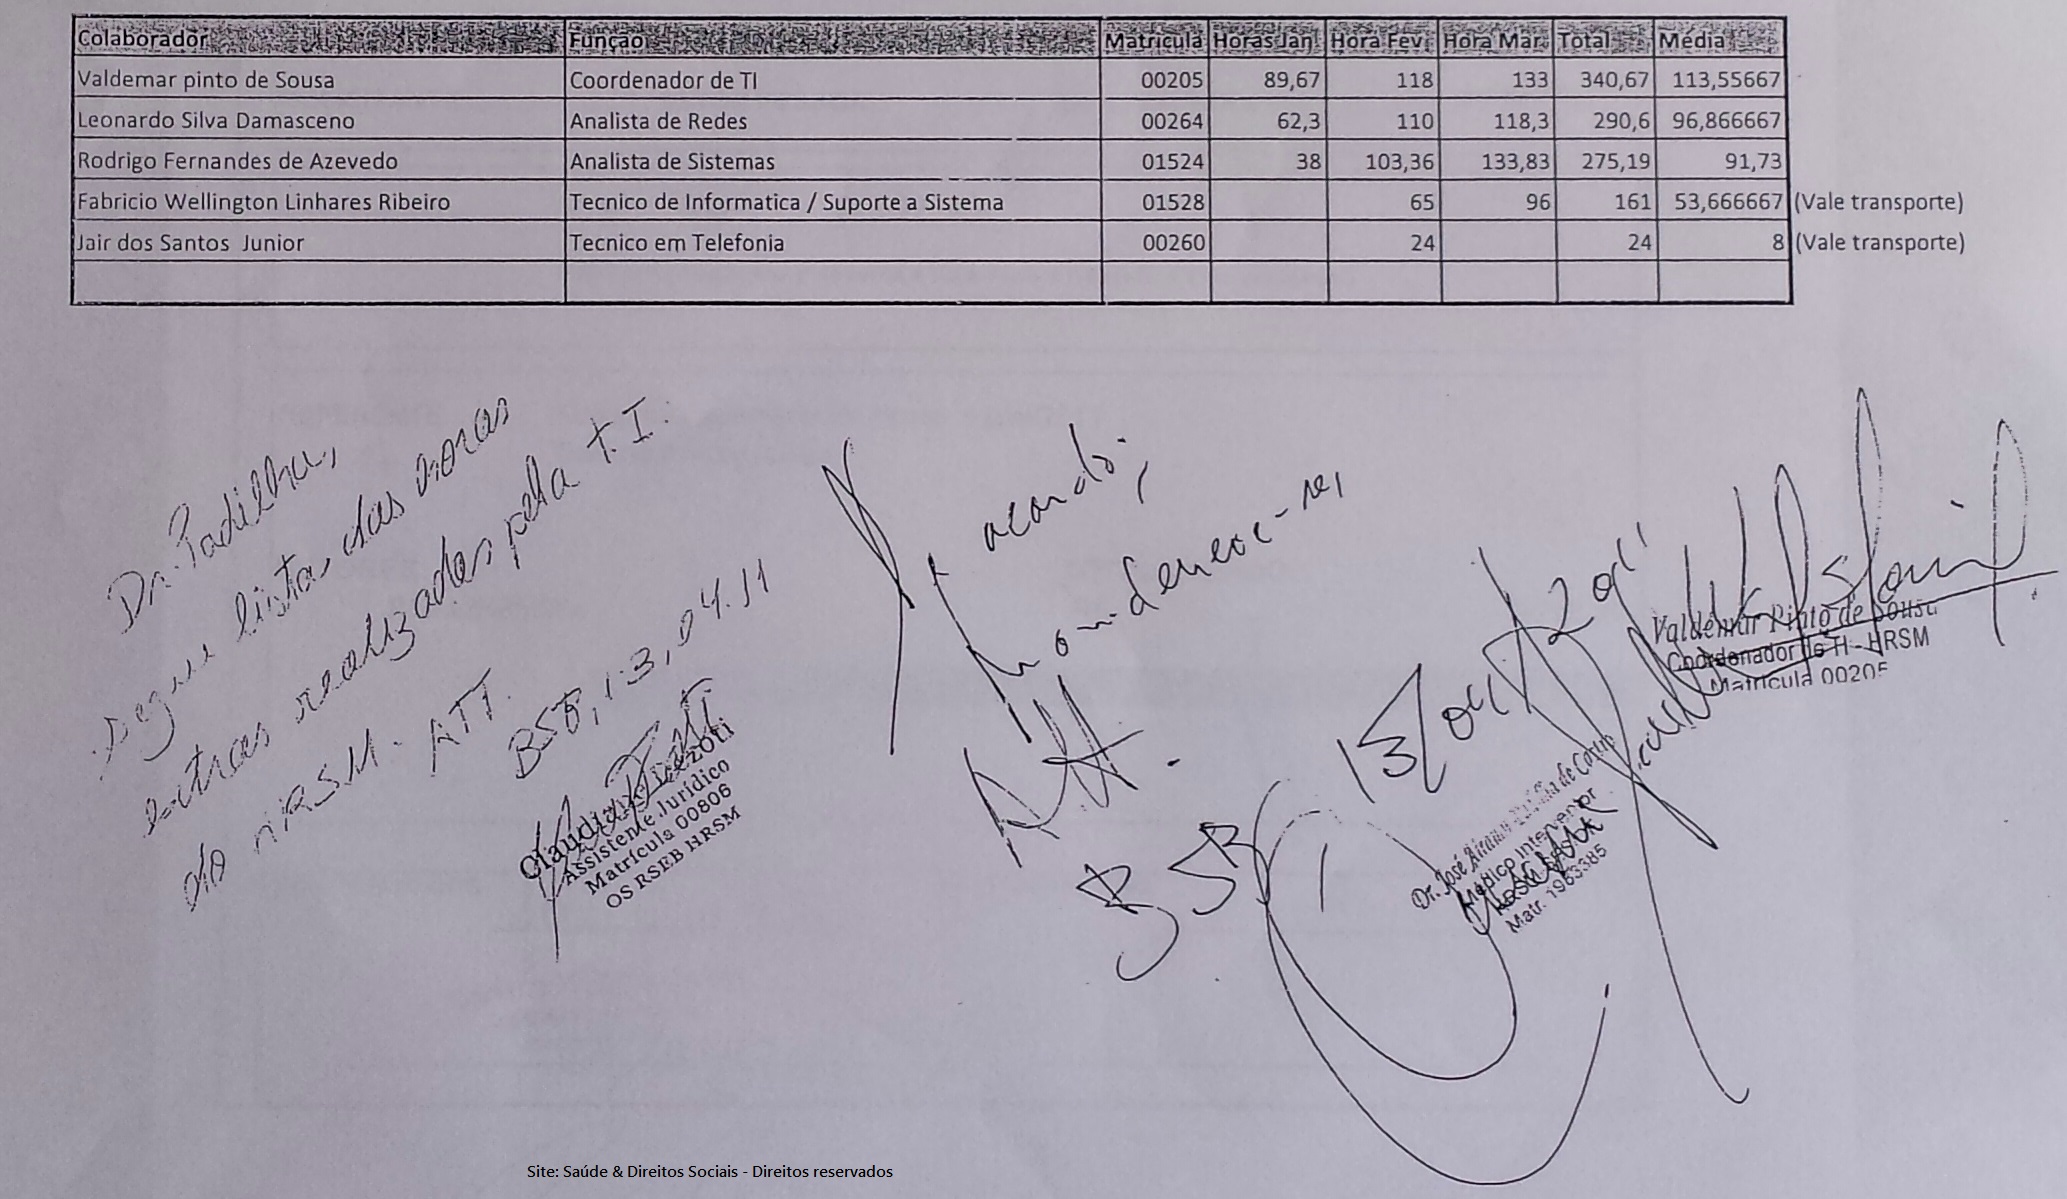 Colaborador Função Matricula Horas Jan Hora Fev Hora Mar. Total Média
Valdemar pinto de Sousa Coordenador de TI 00205 89,67 118 133 340,67 113,55667
Leonardo Silva Damasceno Analista de Redes 00264 62,3 110 118,3 290,6 96,866667
Rodrigo Fernandes de Azevedo Analista de Sistemas 01524 38 103,36 133,83 275,19 91,73
Fabricio Wellington Linhares Ribeiro Tecnico de Informatica / Suporte a Sistema 01528 65 96 161 53,666667 (Vale transporte)
Jair dos Santos Junior Tecnico em Telefonia 00260 24 24 8 (Vale transporte)
Dr. Padilha,
segue lista das horas
extras realizadas pela T.I.
do HRSM. ATT.
BSB, 13,04.11
Assistente Jurídico
Matrícula 00806
OS RSEB HRSM
De acordo,
Att.
BSB, 13/04/2011
Dr. José
Médico Interventor
Matr. 1983385
Valdemar Pinto de Sousa
Coordenador de TI - HRSM
Matrícula 00205
Site: Saúde & Direitos Sociais - Direitos reservados